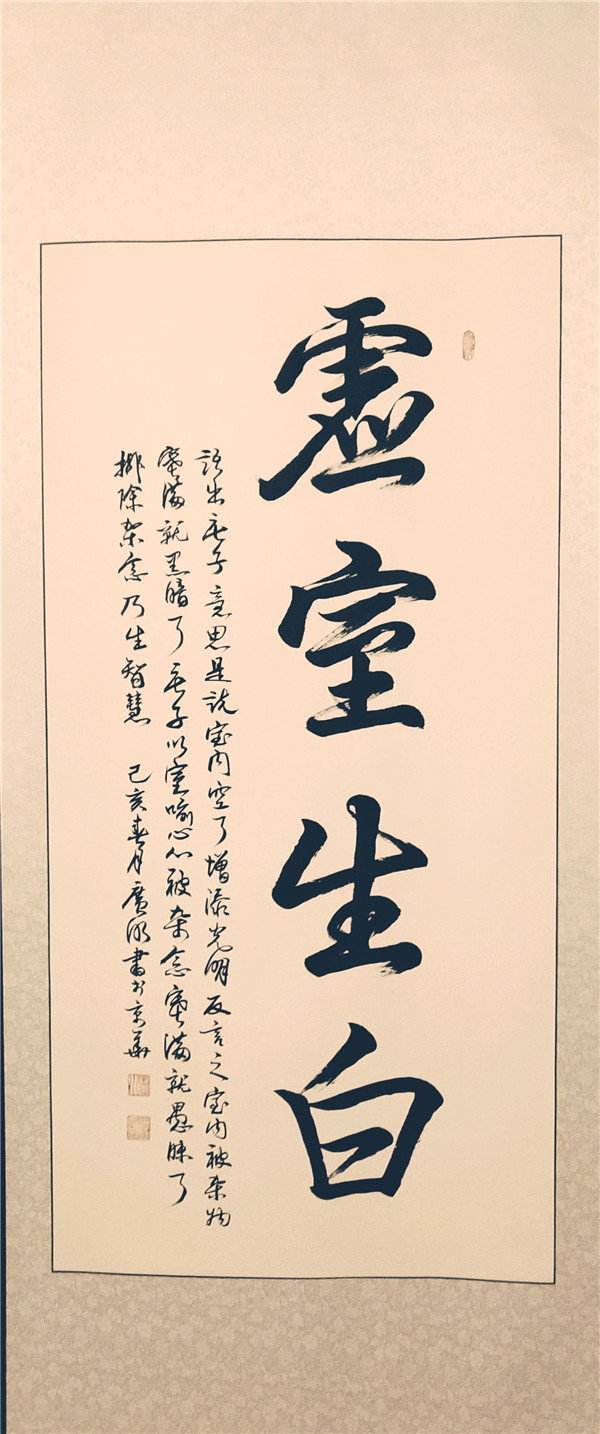 虛室生白
語出庄子意思是説室内空了增添光明反言之室内被杂物
塞满就黑暗了庄子以室喻心心被杂念塞满就愚昧了
排除杂念乃生智慧 己亥春月廣沿書於京華